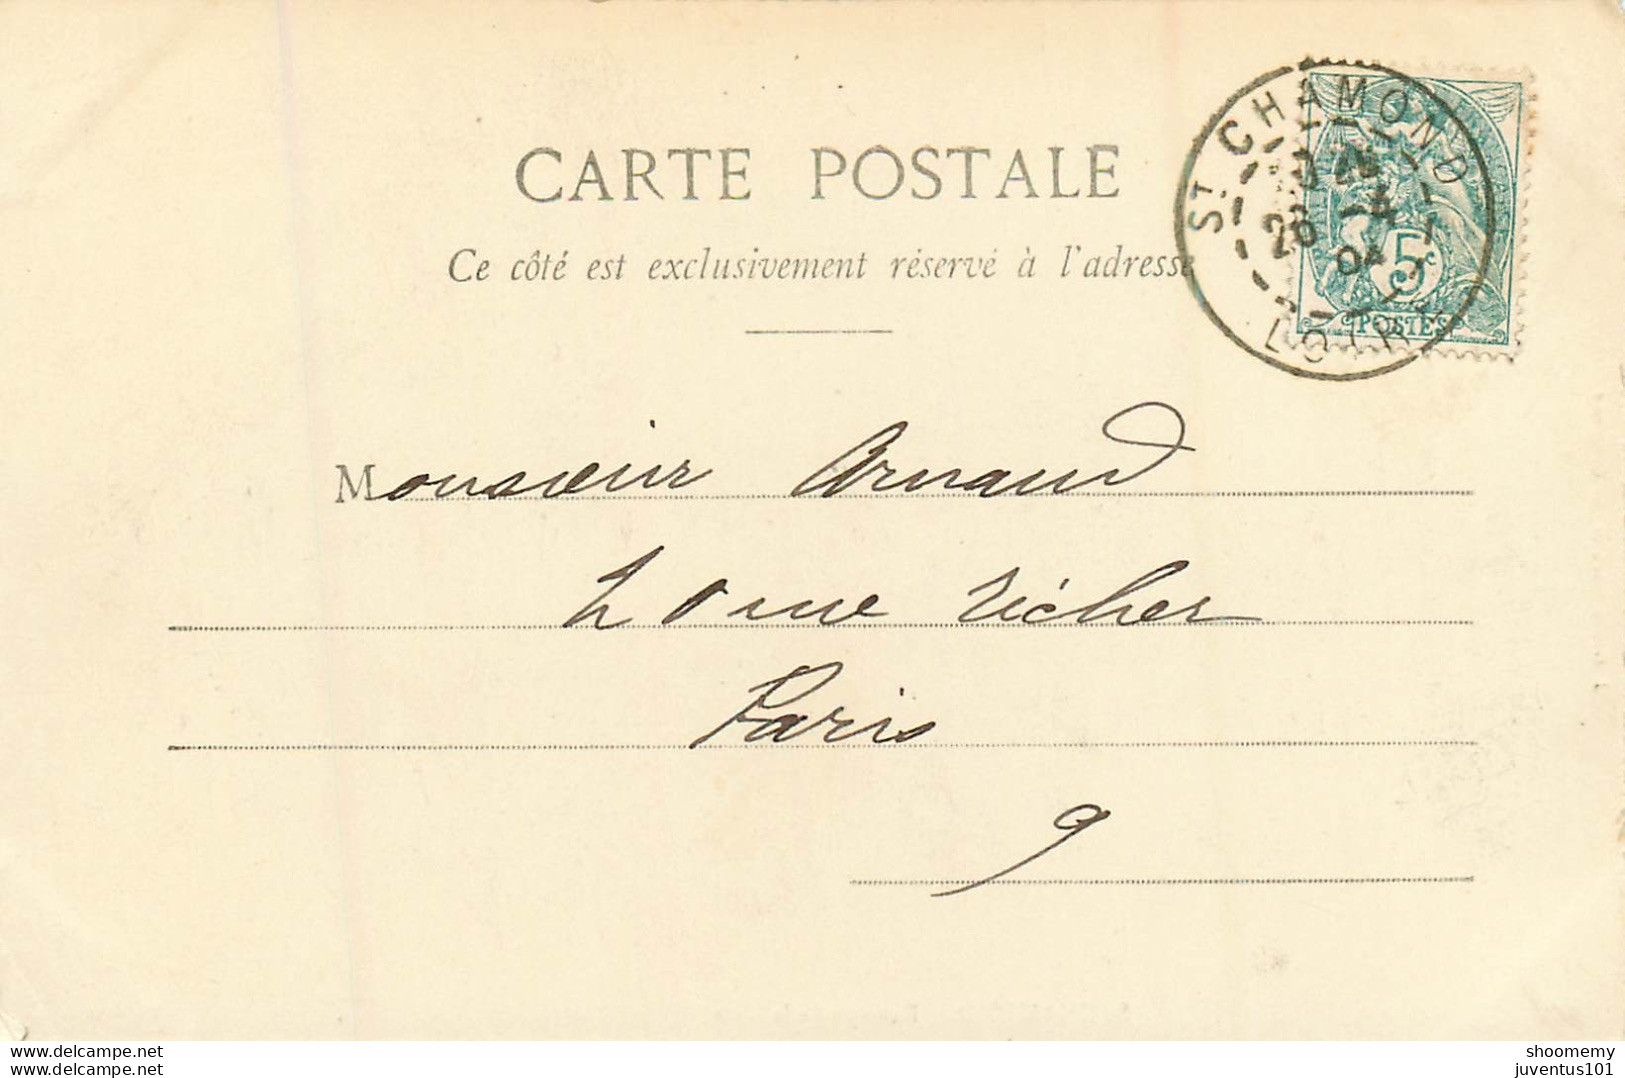 CARTE POSTALE
Ce côté est exclusivement réservé à l'adresse
ST CHAMOND
26
04
LOIRE
5c
POSTES
Monsieur Arnaud
20 rue Richer
Paris
9
delcampe.net
shoomemy
juventus101